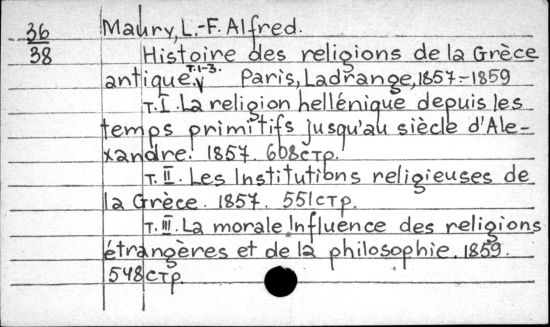 36
38
Maury, L.-F. Alfred.
Histoire des religions de la Grèce
antique. т.1-3. Paris, Ladrange, 1857-1859
т. I. La religion hellénique depuis les
temps primitifs jusqu'au siècle d'Ale-
xandre. 1857. 608 стр.
т. II. Les Institutions religieuses de
la Grèce. 1857. 551 стр.
т. III. La morale Influence des religions
étrangères et de la philosophie. 1859.
548 стр.